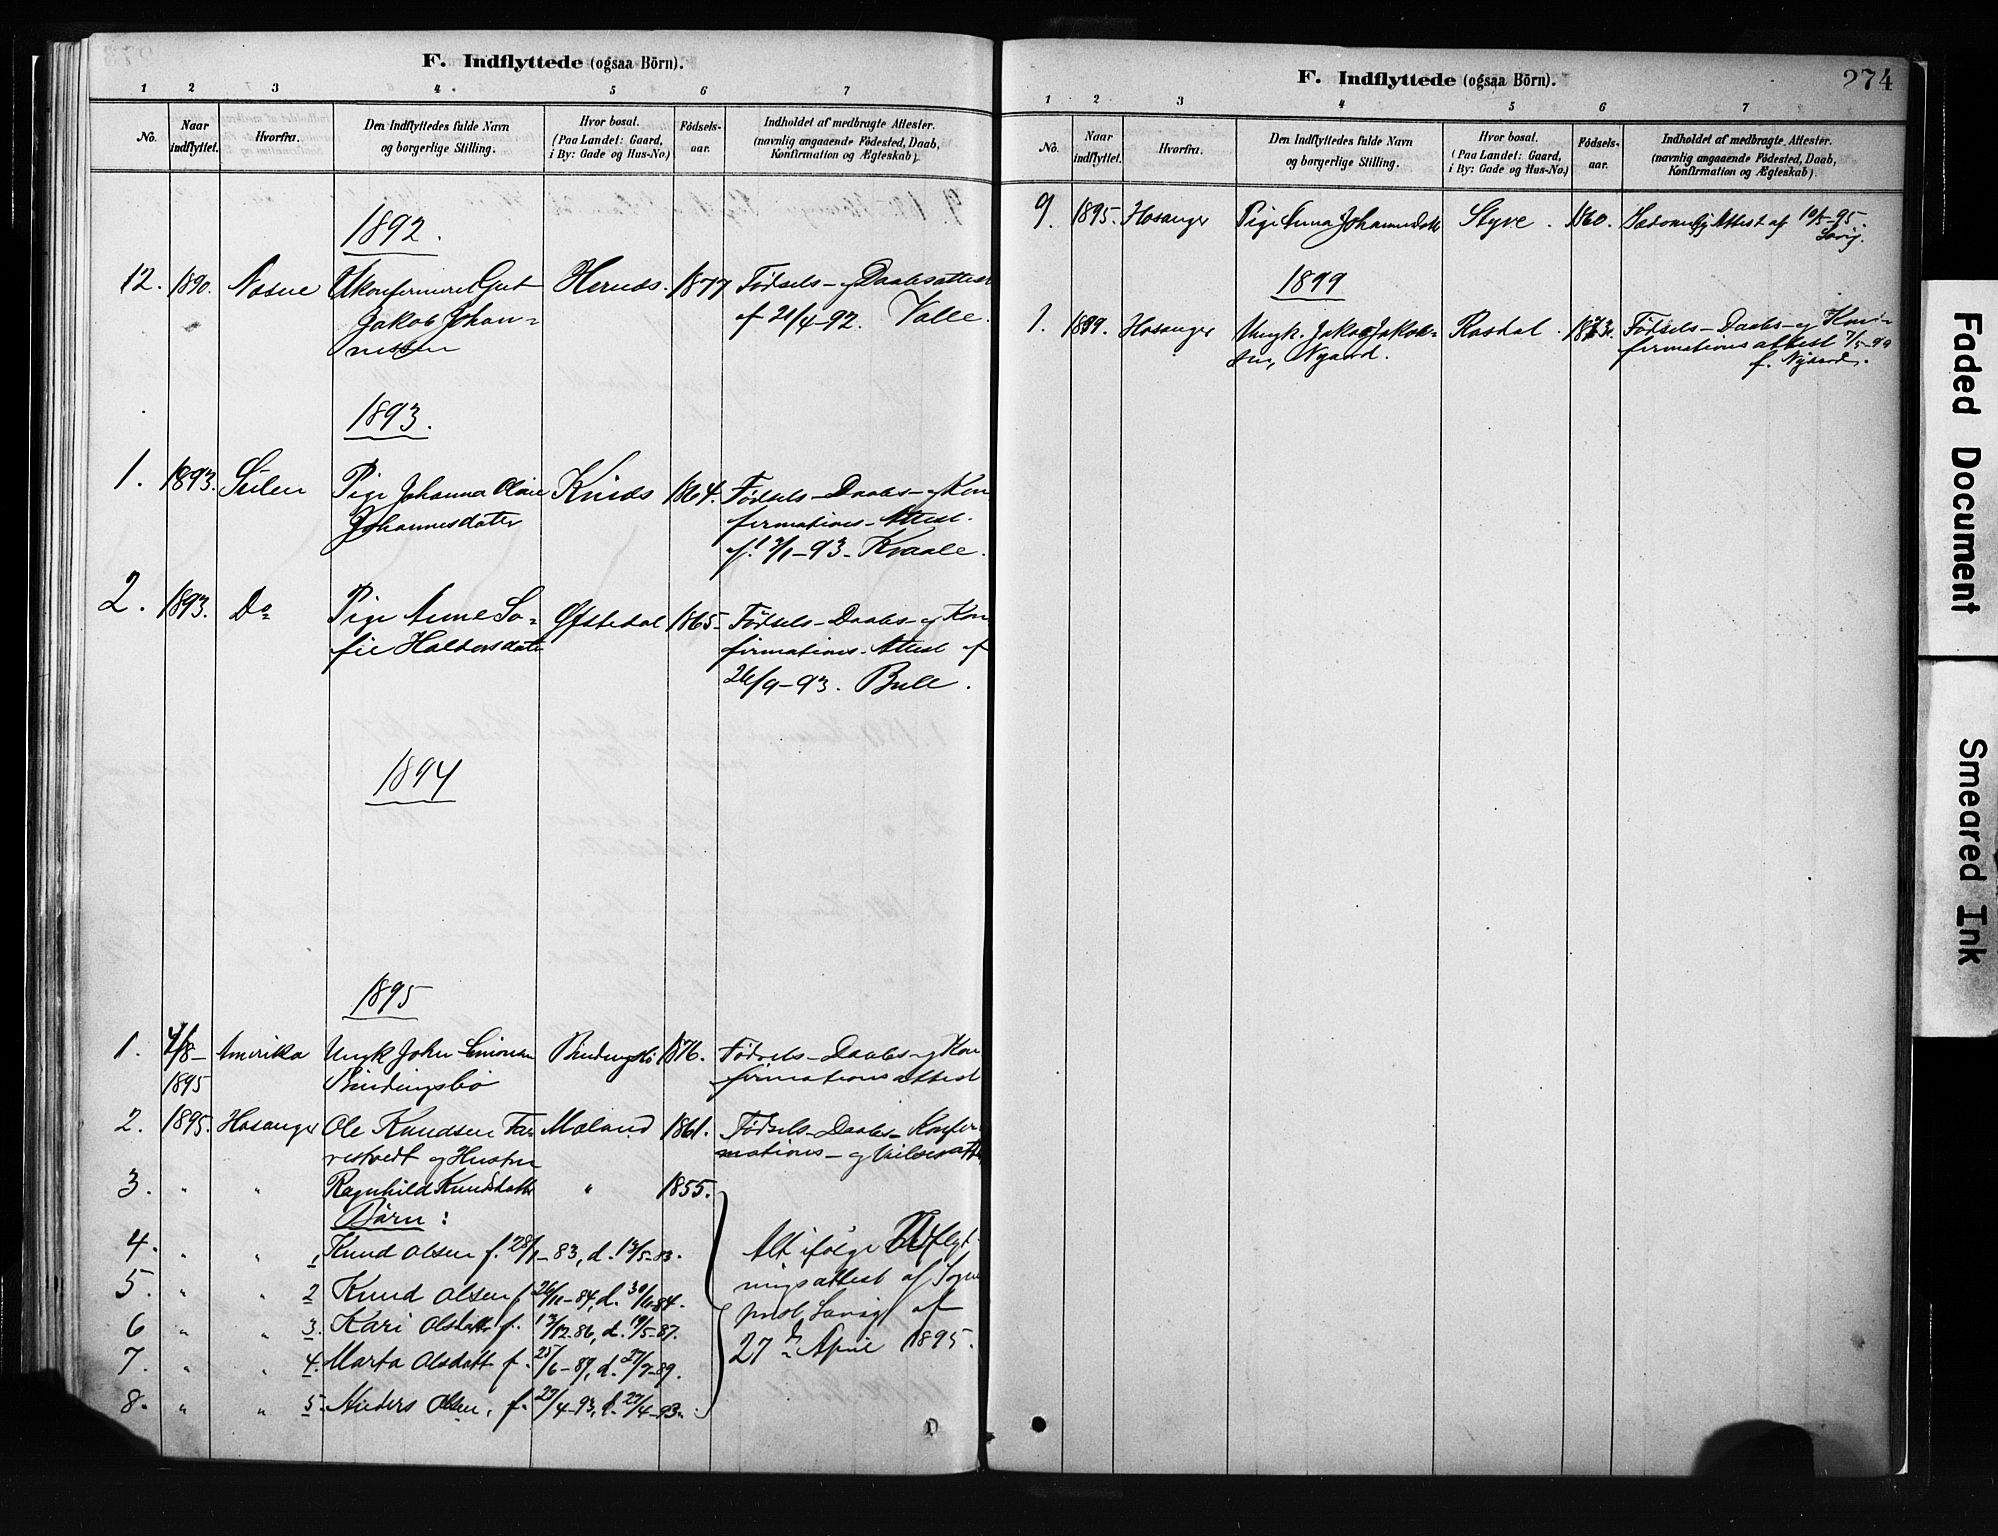 F. Indflyttede (ogsaa Börn).
1 2 3 4 5 6 7
No. Naar indflyttet. Hvorfra. Den Indflyttedes fulde Navn og borgerlige Stilling. Hvor bosat. (Paa Landet: Gaard, i By: Gade og Hus-No.) Fødselsaar. Indholdet af medbragte Attester. (navnlig angaaende Födested, Daab, Konfirmation og Ægteskab).
1892.
12. 1890. Ukonfirmeret Gut 1877 Fødsels- og Daabsattest
Jakob Johan= af 21/4-92. Valle.
nessen
1893.
1. 1893. Pige Johanna Johannesdater 1864. Fødsels- Daabs- og Kon
firmations- Attest.
-93- Kvaale.
2. 1893. Do Pige Anne So= 1865- Fødsels- Daabs- og Kon
fie Haldorsdatt firmations- Attest af
26/9-93. Bull.
1894
1895
1. 4/8- Amerika Ungk John Bindingsbø 1876. Fødsels- Daabs- og Kon
1895 Bindingsbø firmationsattest
2. 1895. Hosanger Ole Knudsen Moland 1861. Fødsels- Daabs- Konfir
og Hustru mations- og
3. " " Ragnhild Knudsdatter " 1855.
Børn:
4. " " 1 Knud Olsen f. 28/1-83, d. 13/5-83. Alt ifølge Udflyt
5. " " 2 Knud Olsen f. 26/11-84, d. 30/11-84. ningsattest af Sogne
6 " " 3. Kari Olsdatt f. 13/12-86, d. 19/5-87. prest af
7. " " 4. Marta Olsdatt f. 25/6-89, d. 27/7-89. 27de April 1895.
8. " " 5. Anders Olsen, f. 23/4-93, d. 27/4-93.
F. Indflyttede (ogsaa Börn). 274
1 2 3 4 5 6 7
No. Naar indflyttet. Hvorfra. Den Indflyttedes fulde Navn og borgerlige Stilling. Hvor bosat. (Paa Landet: Gaard, i By: Gade og Hus-No.) Fødselsaar. Indholdet af medbragte Attester. (navnlig angaaende Födested, Daab, Konfirmation og Ægteskab).
9. 1895. Hosanger Pige Anna Johannesdatt Styve. 1860. Sædvanlig Attest af
1899
1. 1899. Hosanger Ungk. Jakob Jakob= Rasdal. Fødsels- Daabs- og Kon=
sen, Nygaard. firmationsattest 7/5-99
f. Nygaard.
Faded Document
Smeared Ink